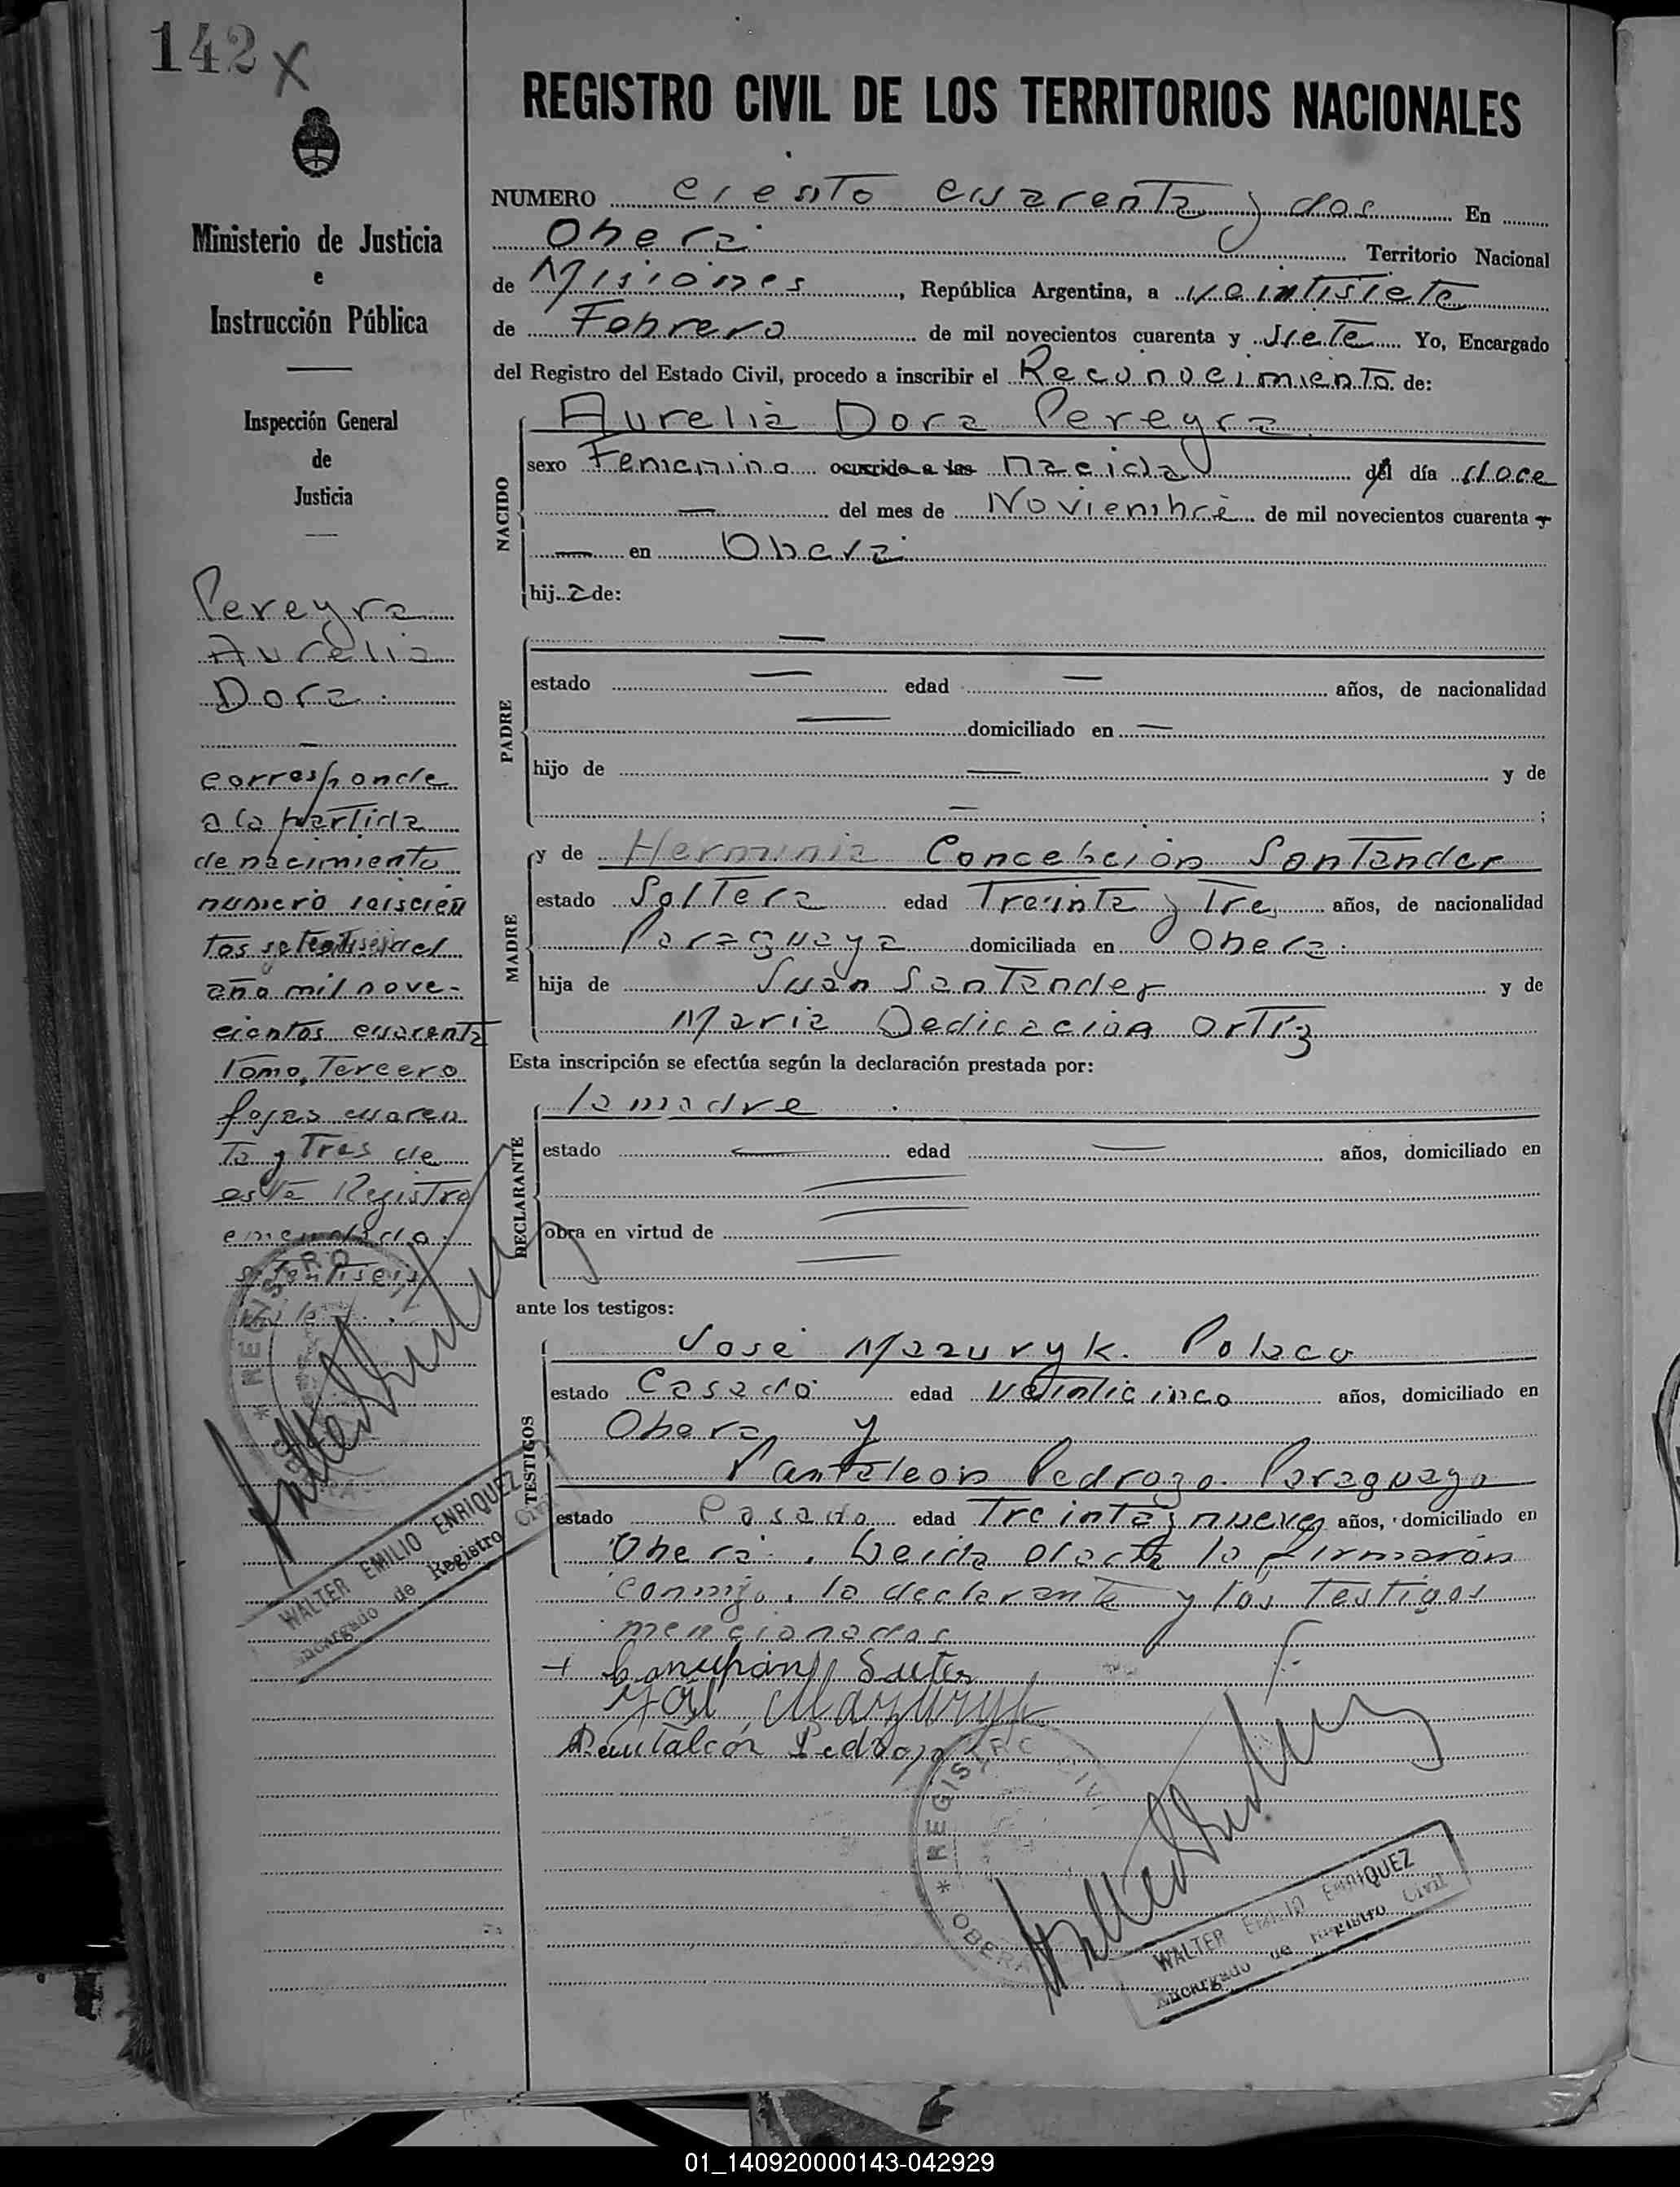 142 X
REGISTRO CIVIL DE LOS TERRITORIOS NACIONALES
Ministerio de Justicia
e
Instrucción Pública
Inspección General
de
Justicia
Pereyra
Aurelia
Dora
corresponde
a la partida
de nacimiento
numero seiscien
tos setentiseis del
año mil nove-
cientos cuarenta
Tomo, Tercero
fojas cuaren
ta y Tres de
este Registro
emendado:
setentiseis
Vale
REGISTRO
WALTER EMILIO ENRIQUEZ
Encargado de Registro Civil
NUMERO ciento cuarenta y dos En
Oberá Territorio Nacional
de Misiones, República Argentina, a veintisiete
de Febrero de mil novecientos cuarenta y siete Yo, Encargado
del Registro del Estado Civil, procedo a inscribir el Reconocimiento de:
NACIDO
Aurelia Dora Pereyra
sexo Femenino ocurrido a las nacida del día doce
— del mes de Noviembre de mil novecientos cuarenta y
— en Oberá
hija de:
PADRE
—
estado — edad — años, de nacionalidad
— domiciliado en —
hijo de — y de
— ;
MADRE
y de Herminia Concebción Santander
estado Soltera edad Treinta y Tres años, de nacionalidad
Paraguaya domiciliada en Oberá
hija de Juan Santander y de
Maria Dedicación Ortíz
Esta inscripción se efectúa según la declaración prestada por:
DECLARANTE
la madre
estado — edad — años, domiciliado en
—
obra en virtud de —
—
ante los testigos:
TESTIGOS
José Mazuryk. Polaco
estado Casado edad veinticinco años, domiciliado en
Obera y
Pantaleon Pedrozo. Paraguayo
estado Casado edad Treinta y nueve años, domiciliado en
Oberá. Leida el acta la firmaron
conmigo, la declarante y los Testigos
mencionados
José Mazuryk
Pantaleón Pedrozo
* REGISTRO CIVIL
* OBERA
WALTER EMILIO ENRIQUEZ
Encargado de Registro Civil
01_140920000143-042929